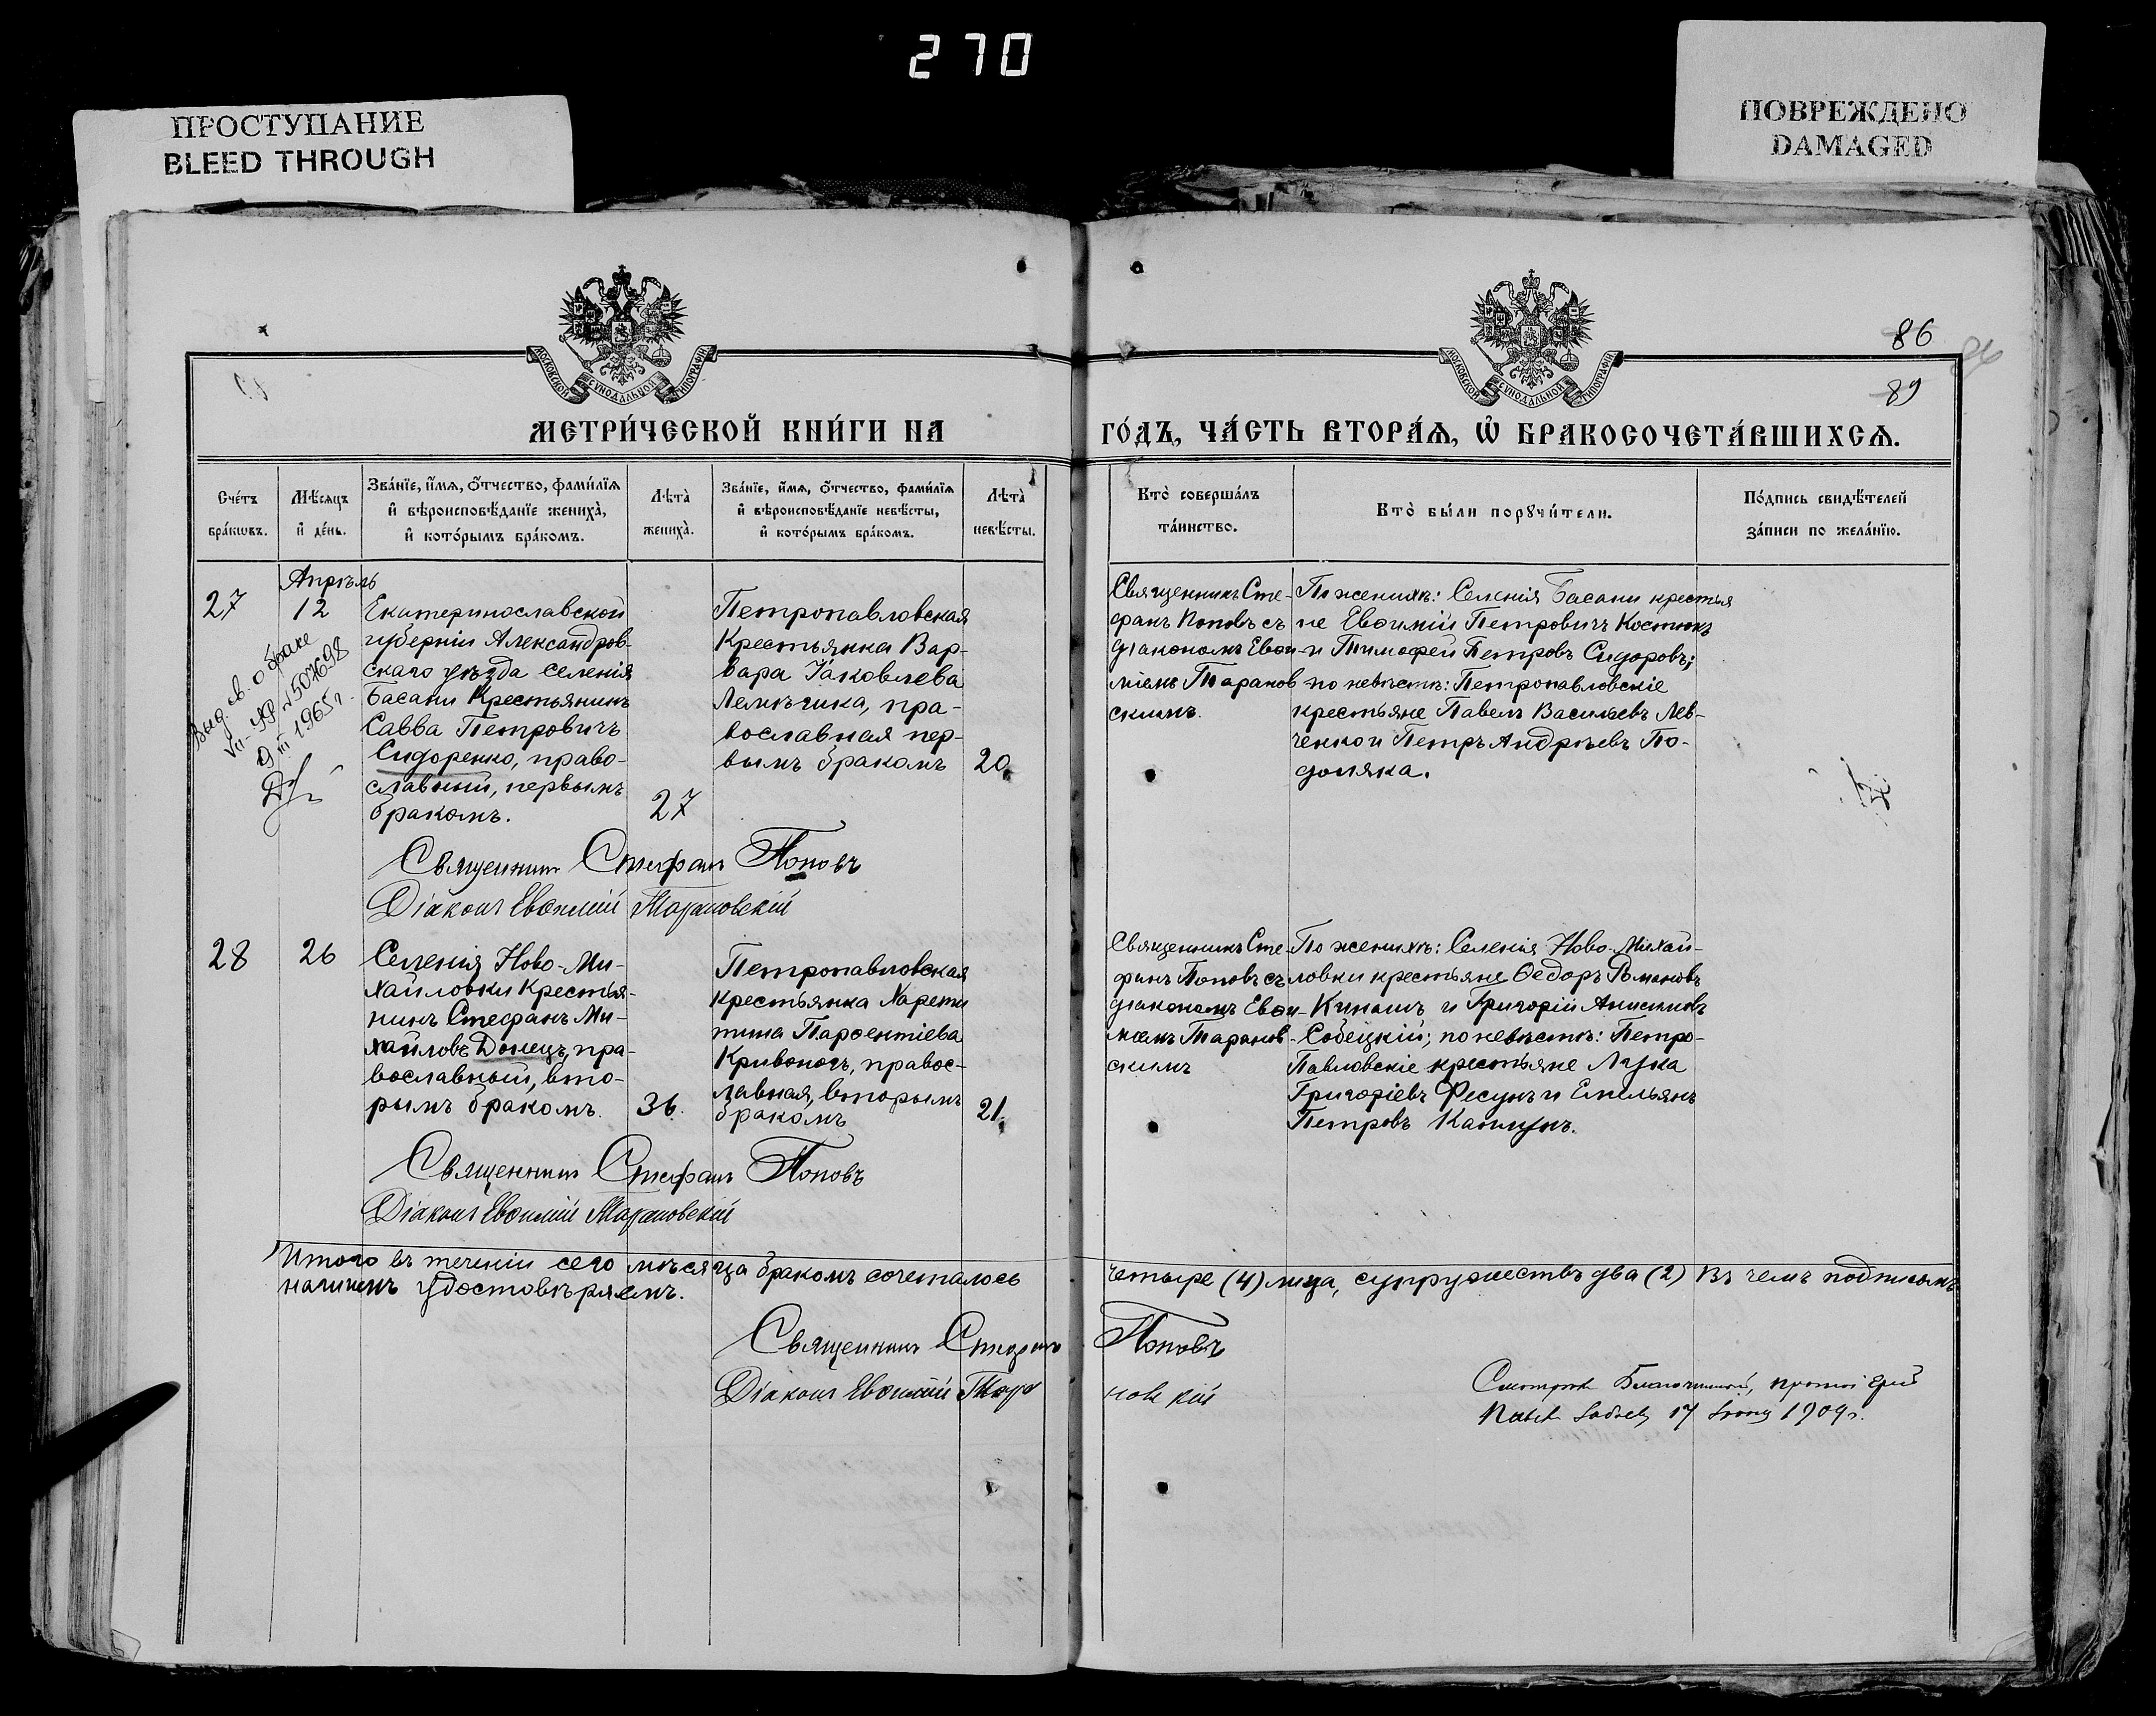 270
ПРОСТУПАНИЕ
BLEED THROUGH
ПОВРЕЖДЕНО
DAMAGED
МОСКОВСКОЙ СѴНОДАЛЬНОЙ ТИПОГРАФІИ
МОСКОВСКОЙ СѴНОДАЛЬНОЙ ТИПОГРАФІИ
86
89
МЕТРИ́ЧЕСКОЙ КНИ́ГИ НА
ГО́ДЪ, ЧА́СТЬ ВТОРА́Ѧ, Ѽ БРАКОСОЧЕТА́ВШИХСѦ.
Сче́тъ
бра́кѡвъ.
Мѣ́сѧцъ
и҆ де́нь.
Зва́нїе, и҆́мѧ, ѻ҆́тчество, фами́лїѧ
и҆ вѣроисповѣ́данїе жениха̀,
и҆ кото́рымъ бра́комъ.
Лѣта̀
жениха̀.
Зва́нїе, и҆́мѧ, ѻ҆́тчество, фами́лїѧ
и҆ вѣроисповѣ́данїе невѣ́сты,
и҆ кото́рымъ бра́комъ.
Лѣта̀
невѣ́сты.
Кто̀ соверша́лъ
та́инство.
Кто̀ бы́ли порꙋчи́тели.
По́дпись свидѣ́телей
за́писи по жела́нїю.
27
Апрѣль
12
Выд. св. о браке
№ 507698
1965 г.
Екатеринославской
губерніи Александров-
скаго уѣзда селенія
Басани Крестьянинъ
Савва Петровичъ
Сидоренко, право-
славный, первымъ
бракомъ.
27
Петропавловская
Крестьянка Вар-
вара Іаковлева
пра-
вославная пер-
вымъ бракомъ
20.
Священникъ Сте-
фанъ Поповъ съ
діакономъ Евѳи-
міемъ Таранов
скимъ.
По женихѣ: Селенія Басани крестья
не Евѳимій Петровичъ Костюкъ
и Тимофей Петровъ Сидоровъ;
по невѣстѣ: Петропавловскіе
крестьяне Павелъ Васильевъ Лев-
ченко и Петръ Андрѣевъ По-
доляка.
Священникъ Стефан Поповъ
Діаконъ Евѳимій Тарановскій
28
26
Селенія Ново-Ми-
хайловки Крестья-
нинъ Стефанъ Ми-
хайловъ Донецъ, пра-
вославный, вто-
рымъ бракомъ.
36.
Петропавловская
крестьянка Харити
тина Парѳентіева
Кривоносъ, правос-
лавная, вторымъ
бракомъ
21.
Священникъ Сте-
фанъ Поповъ съ
діакономъ Евѳи-
міемъ Таранов-
скимъ
По женихѣ: Селенія Ново-Михай-
ловки крестьяне Ѳедоръ Романовъ
и Григорій Анисимовъ
Собецкій; по невѣстѣ: Петро-
Павловскіе крестьяне Лука
Григоріевъ Фесунъ и Емельянъ
Петровъ
Священникъ Стефанъ Поповъ
Діаконъ Евѳимій Тарановскій
Итого въ теченіи сего мѣсяца бракомъ сочеталось четыре (4) лица, супружествъ два (2) Въ чемъ подписомъ
нашимъ удостовѣряемъ.
Священникъ Стефанъ Поповъ
Діаконъ Евѳимій Тарановскій
Смотрѣлъ Благочинный, протоіерей
17 1909 г.